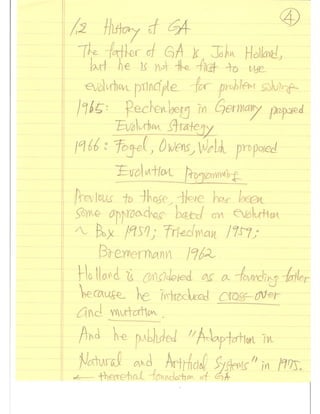 ④
1.2 History of GA
The father of GA is John Holland,
but he is not the first to use
evolution principle for problem solving
1965: Rechenberg in Germany proposed
Evolution Strategy
1966: Fogel, Owens, Walsh proposed
Evolution Programming
Previous to those, there has been
some approaches based on evolution
~ Box 1957; Friedman 1959;
Bremermann 1962
Holland is considered as a founding father
because he introduced cross-over
and mutation.
And he published "Adaptation in
Natural and Artificial Systems" in 1975.
← theoretical foundation of GA